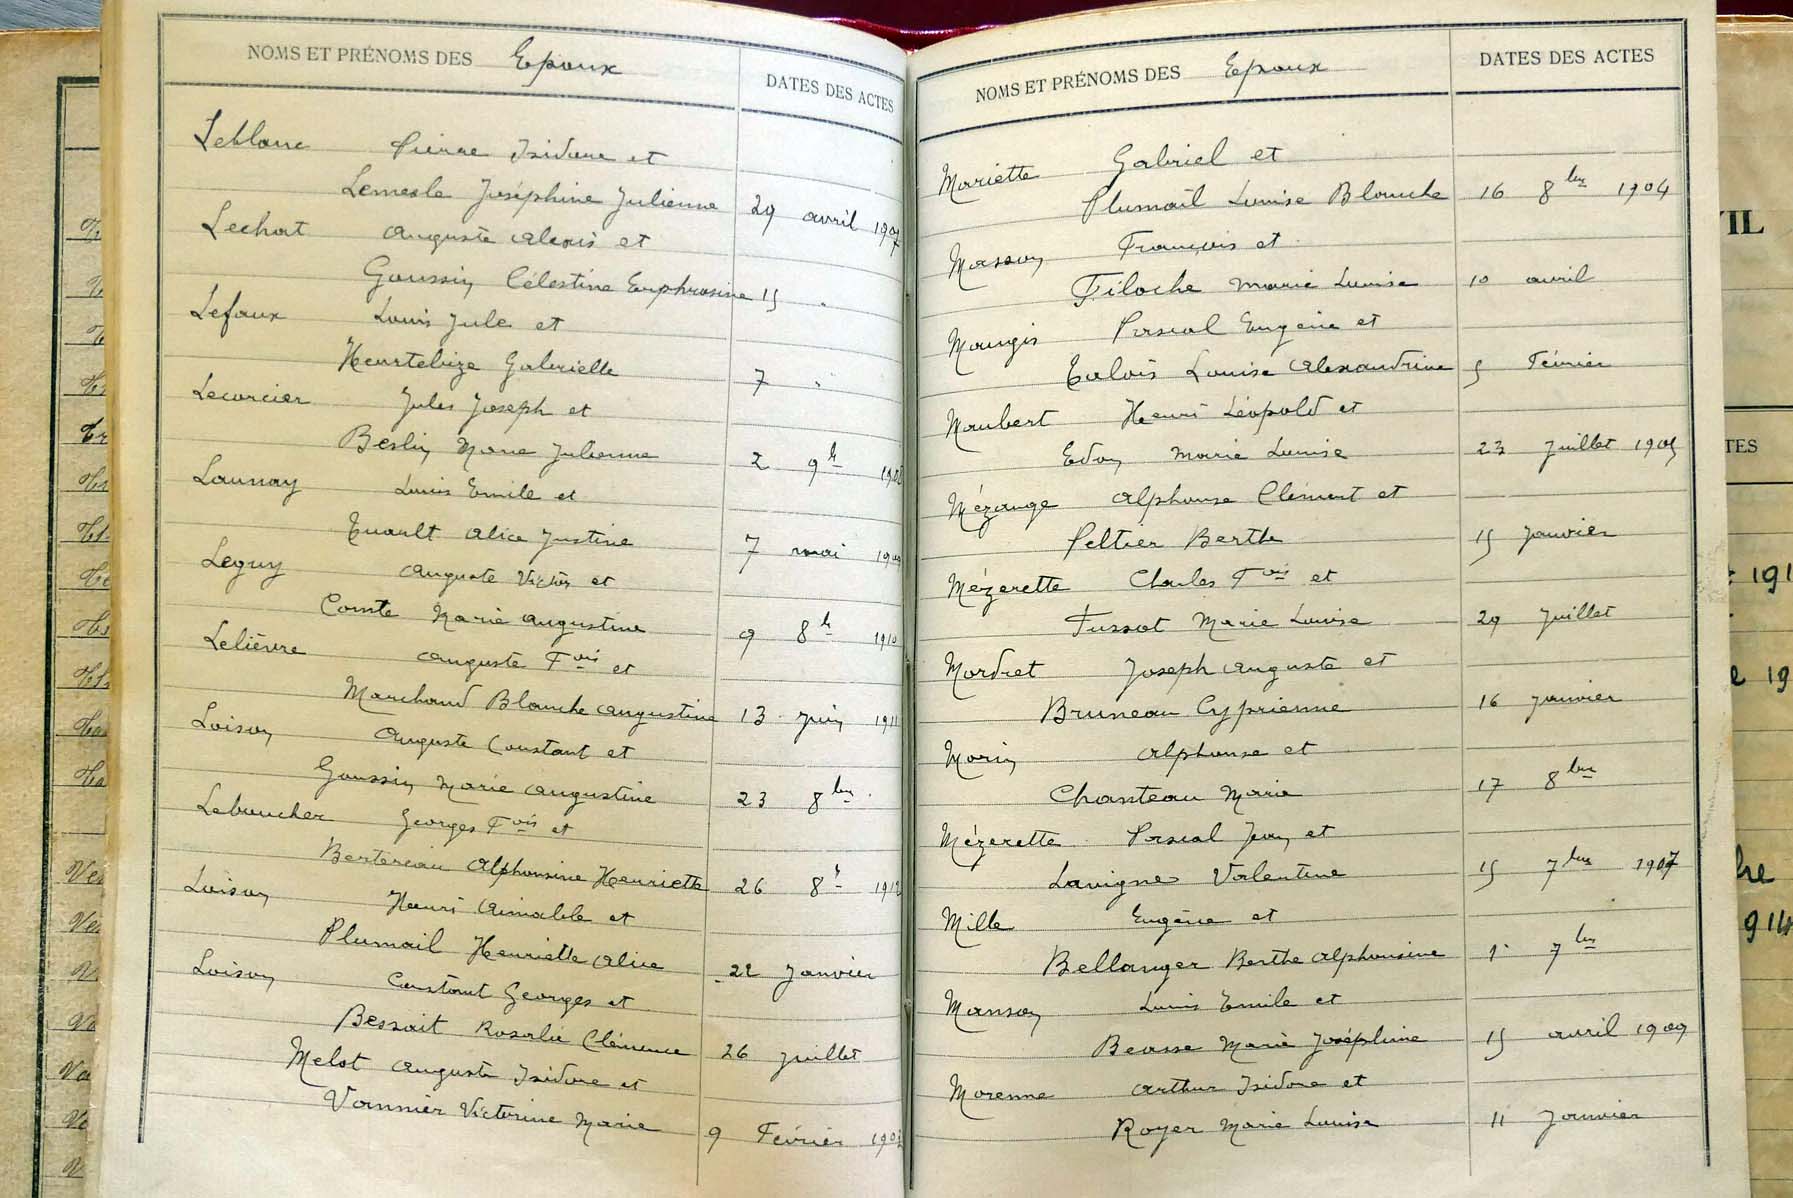 NOMS ET PRÉNOMS DES Epoux
DATES DES ACTES
Leblanc Pierre Isidore et
Lemesle Joséphine Julienne 29 avril 1907
Lechat Auguste Alexis et
Goussin Célestine Euphrasine 15 "
Lefaux Louis Jule et
Heurtebize Gabrielle 7 "
Lecorcier Jules Joseph et
Beslin Marie Julienne 2 9b 1908
Launay Louis Emile et
Tuault Alice Justine 7 mai 1909
Leguy Auguste Victor et
Comte Marie Augustine 9 8b 1910
Lelièvre Auguste Fois et
Marchand Blanche Augustine 13 Juin 1911
Loison Auguste Constant et
Goussin Marie Augustine 23 8bre
Leboucher Georges Fois et
Bertereau Alphonsine Henriette 26 8b 1912
Loison Henri Aimable et
Plumail Henriette Alice 22 Janvier
Loison Constant Georges et
Bessait Rosalie Clémence 26 Juillet
Melot Auguste Isidore et
Vannier Victorine Marie 9 Février
NOMS ET PRÉNOMS DES Epoux
DATES DES ACTES
Mariette Gabriel et
Plumail Louise Blanche 16 8bre 1904
Masson François et
Filoche Marie Louise 10 avril
Maugis Pascal Eugène et
Louise Alexandrine 5 Février
Maubert Henri Léopold et
Edon Marie Louise 23 Juillet 1905
Mézange Alphonse Clément et
Peltier Berthe 15 Janvier
Mézerette Charles Fois et
Tussot Marie Louise 29 Juillet
Mordret Joseph Auguste et
Bruneau Cyprienne 16 Janvier
Morin Alphonse et
Chanteau Marie 17 8bre
Mézerette Pascal Jean et
Lavigne Valentine 15 7bre 1907
Mille Eugène et
Bellanger Berthe Alphonsine 1er 7bre
Manson Louis Emile et
Beasse Marie Joséphine 15 avril 1909
Morenne Arthur Isidore et
Royer Marie Louise 11 Janvier